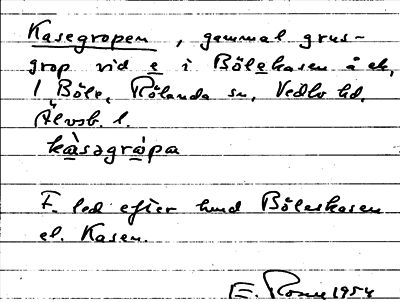 Kasegropen, gammal grus-
grop vid e i Bölekasen å ek.
1/4 Böle, Rölanda sn, Vedbo hd.
Älvsb. l.
kàsəgrópa
F. led efter hund Böleskasen
el. Kasen.
1954